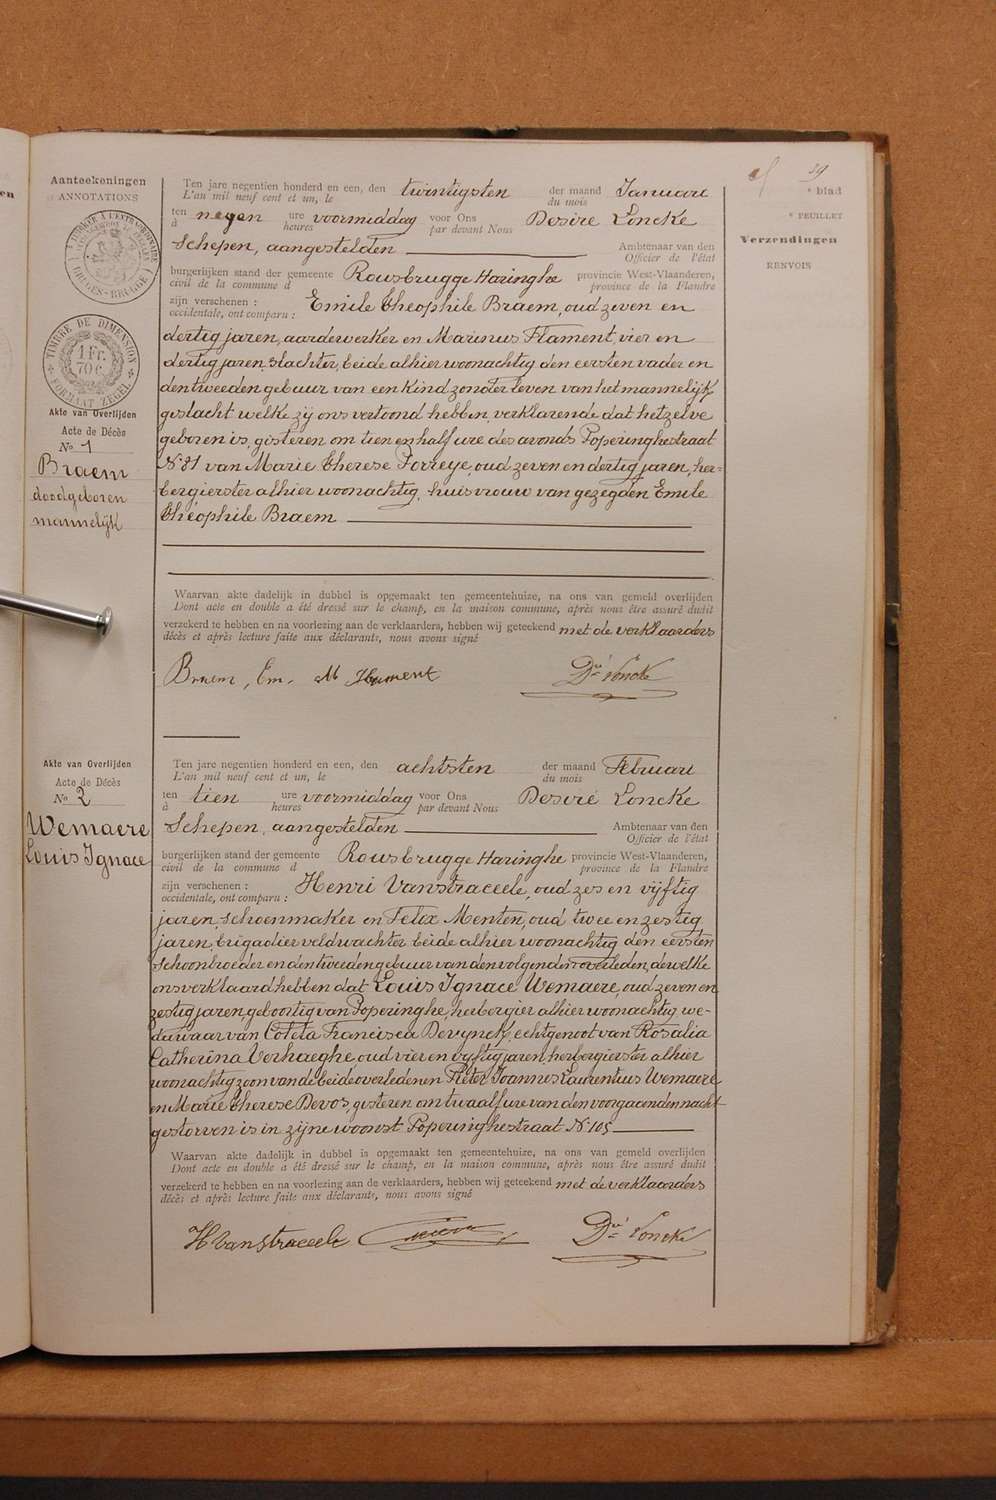 29
blad
FEUILLET
Verzendingen
RENVOIS
en
Aanteekeningen
ANNOTATIONS
BRUGES-BRUGGE
TIMBRE DE DIMENSION
1 Fr.
70 c.
FORMAAT ZEGEL
Akte van Overlijden
Acte de Décès
No 1
Braem
doodgeboren
mannelijk
Ten jare negentien honderd en een, den twintigsten der maand Januari
L'an mil neuf cent et un, le du mois
ten negen ure voormiddag voor Ons Desiré Loncke
à heures par devant Nous
Schepen, aangestelden Ambtenaar van den
Officier de l'état
burgerlijken stand der gemeente Rousbrugge Haringhe provincie West-Vlaanderen,
civil de la commune d province de la Flandre
zijn verschenen : Emile Theophile Braem, oud zeven en
occidentale, ont comparu :
dertig jaren, aarderwerker en Marinus Flament, vier en
dertig jaren, slachter, beide alhier woonachtig den eersten vader en
den tweeden gebuur van een kind zonder leven van het mannelijk
geslacht welke zij ons vertoond hebben, verklarende dat hetzelve
geboren is, gisteren om tien en half ure des avonds Poperinghestraat
N. 81 van Marie Therese Forreye, oud zeven en dertig jaren, her-
bergierster alhier woonachtig, huisvrouw van gezegden Emile
Théophile Braem
Waarvan akte dadelijk in dubbel is opgemaakt ten gemeentehuize, na ons van gemeld overlijden
Dont acte en double a été dressé sur le champ, en la maison commune, après nous être assuré dudit
verzekerd te hebben en na voorlezing aan de verklaarders, hebben wij geteekend met de verklaarders
décès et après lecture faite aux déclarants, nous avons signé
Braem, Em. M Flament Dré Loncke
Akte van Overlijden
Acte de Décès
No 2
Wemaere
Louis Ignace
Ten jare negentien honderd en een, den achtsten der maand Februari
L'an mil neuf cent et un, le du mois
ten tien ure voormiddag voor Ons Desiré Loncke
à heures par devant Nous
Schepen, aangestelden Ambtenaar van den
Officier de l'état
burgerlijken stand der gemeente Rousbrugge Haringhe provincie West-Vlaanderen,
civil de la commune d province de la Flandre
zijn verschenen : Henri Vanstraceele, oud zes en vijftig
occidentale, ont comparu :
jaren, schoenmaker en Felix Menten, oud twee en zestig
jaren, brigadier veldwachter beide alhier woonachtig den eersten
schoonbroeder en den tweeden gebuur van den volgenden overleden, dewelke
ons verklaard hebben dat Louis Ignace Wemaere, oud zeven en
zestig jaren, geboortig van Poperinghe, herbergier alhier woonachtig, we-
duwaar van Coleta Francisca Devynck, echtgenoot van Rosalia
Catherina Verhaeghe oud vier en vijftig jaren, herbergierster alhier
woonachtig zoon van de beide overledenen Pieter Joannes Laurentius Wemaere
en Marie Therese Devos, gisteren om twaalf ure van den voorgaanden nacht
gestorven is in zijne woonst Poperinghestraat N. 105
Waarvan akte dadelijk in dubbel is opgemaakt ten gemeentehuize, na ons van gemeld overlijden
Dont acte en double a été dressé sur le champ, en la maison commune, après nous être assuré dudit
verzekerd te hebben en na voorlezing aan de verklaarders, hebben wij geteekend met de verklaarders
décès et après lecture faite aux déclarants, nous avons signé
H Vanstraceele Dré Loncke